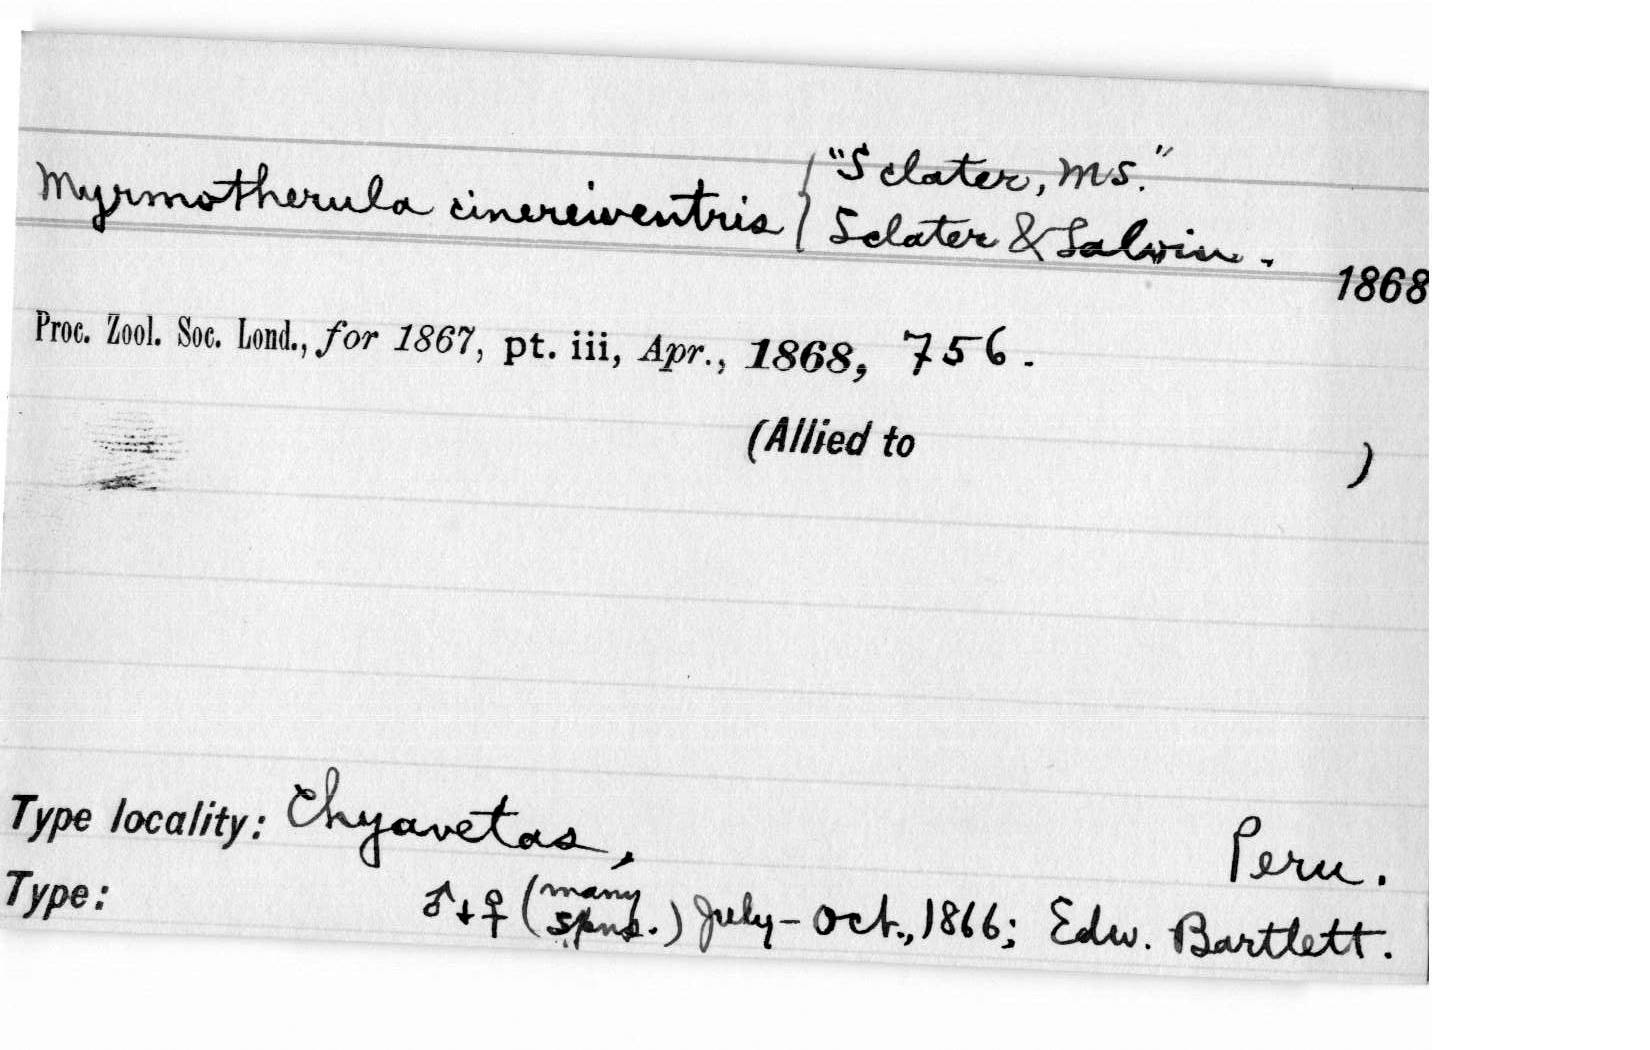 Myrmotherula cinereiventris { "Sclater, MS."
Sclater & Salvin.
1868
Proc. Zool. Soc. Lond., for 1867, pt. iii, Apr., 1868, 756.
(Allied to )
Type locality: Chyavetas, Peru.
Type: ♂ + ♀ (many spns.) July - Oct., 1866; Edw. Bartlett.